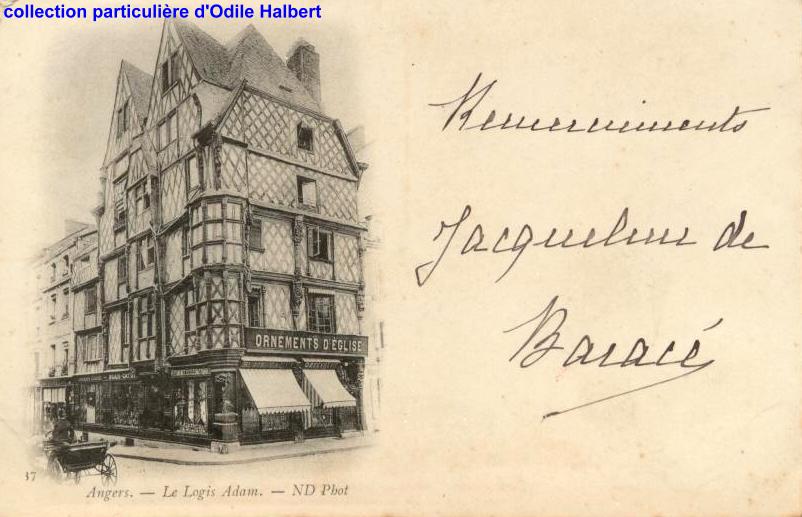 collection particulière d'Odile Halbert
Remerciements
Jacqueline de
Baracé
ORNEMENTS D'ÉGLISE
37
Angers. — Le Logis Adam. — ND Phot